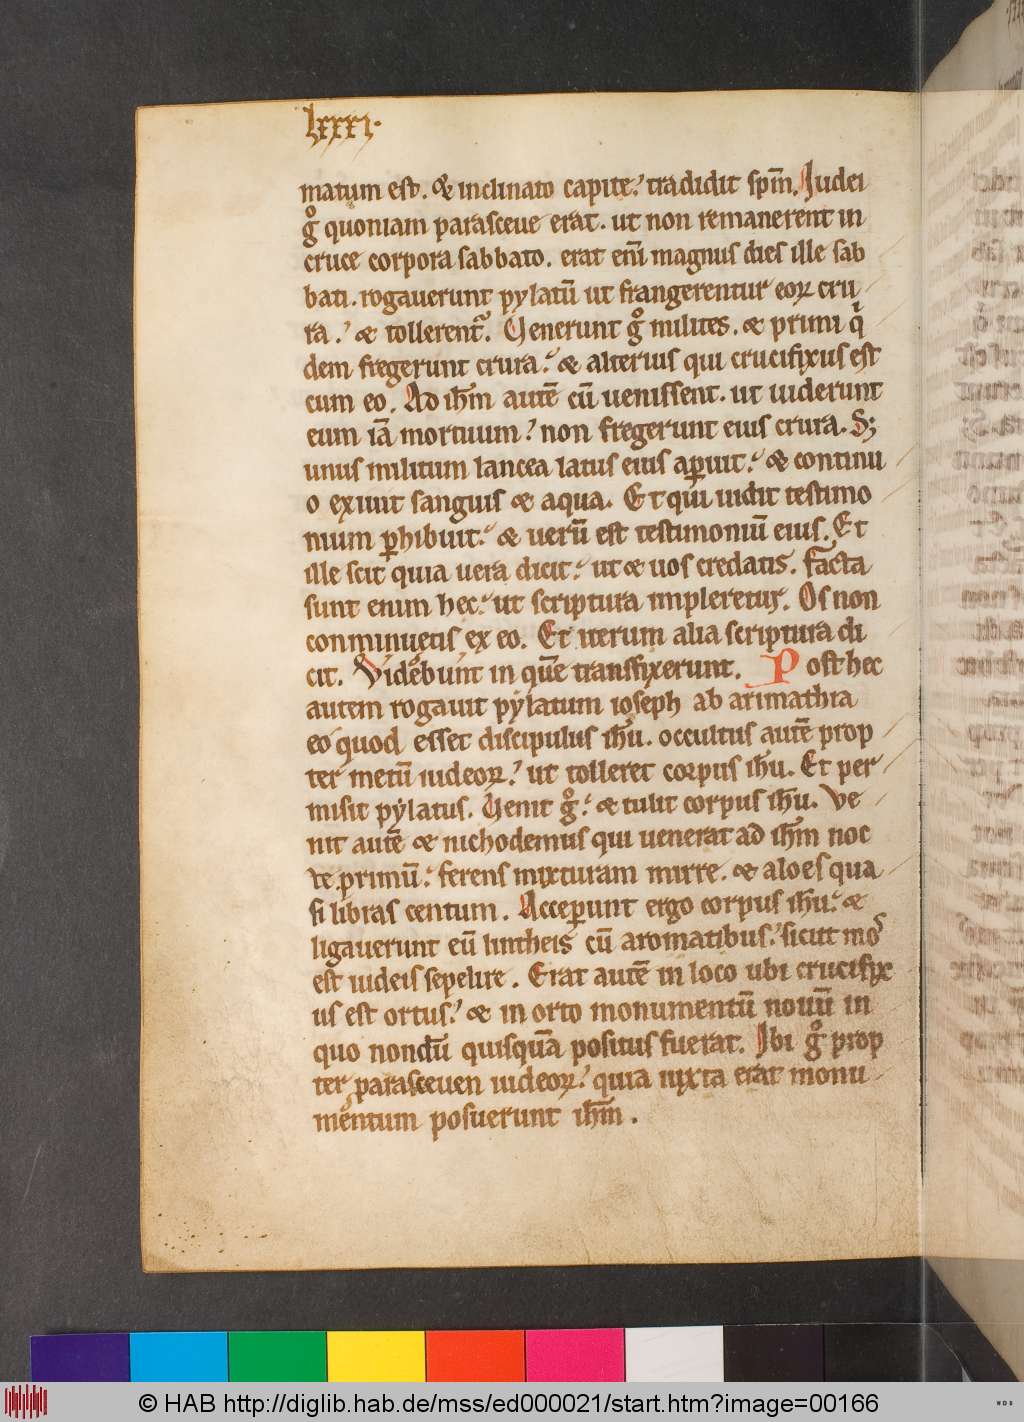 lxxxi.
matum est. & inclinato capite. tradidit sp̄m. Iudei
gͦ quoniam parasceue erat. ut non remanerent in
cruce corpora sabbato. erat enī magnus dies ille sab
bati. rogauerunt pylatū ut frangerentur eoꝝ cru
ra. & tollerent᷑. Uenerunt gͦ milites. & primi qͥ
dem fregerunt crura. & alterius qui crucifixus est
cum eo. Ad ih̄m autē cū uenissent. ut uiderunt
eum iā mortuum. non fregerunt eius crura. Sꝫ
unus militum lancea latus eius aꝑuit. & continu
o exiuit sanguis & aqua. Et qui uidit testimo
nium ꝑhibuit. & uerū est testimoniū eius. Et
ille scit quia uera dicit. ut & uos credatis. Facta
sunt enim hec. ut scriptura impleretur. Os non
conminuetis ex eo. Et iterum alia scriptura di
cit. Videbunt in quē transfixerunt. Post hec
autem rogauit pylatum ioseph ab arimathia
eo quod esset discipulus ih̄u. occultus autē prop
ter metū iudeoꝝ. ut tolleret corpus ih̄u. Et per
misit pylatus. Uenit gͦ. & tulit corpus ih̄u. Ve
nit autē & nichodemus qui uenerat ad ih̄m noc
te primū. ferens mixturam mirre. & aloes qua
si libras centum. Acceꝑunt ergo corpus ih̄u. &
ligauerunt eū lintheis cū aromatibus. sicut mos
est iudeis sepelire. Erat autē in loco ubi crucifix
us est ortus. & in orto monumentū nouū in
quo nondū quisquā positus fuerat. Ibi gͦ prop
ter parasceuen iudeoꝝ. quia iuxta erat monu
mentum posuerunt ih̄m.
© HAB http://diglib.hab.de/mss/ed000021/start.htm?image=00166